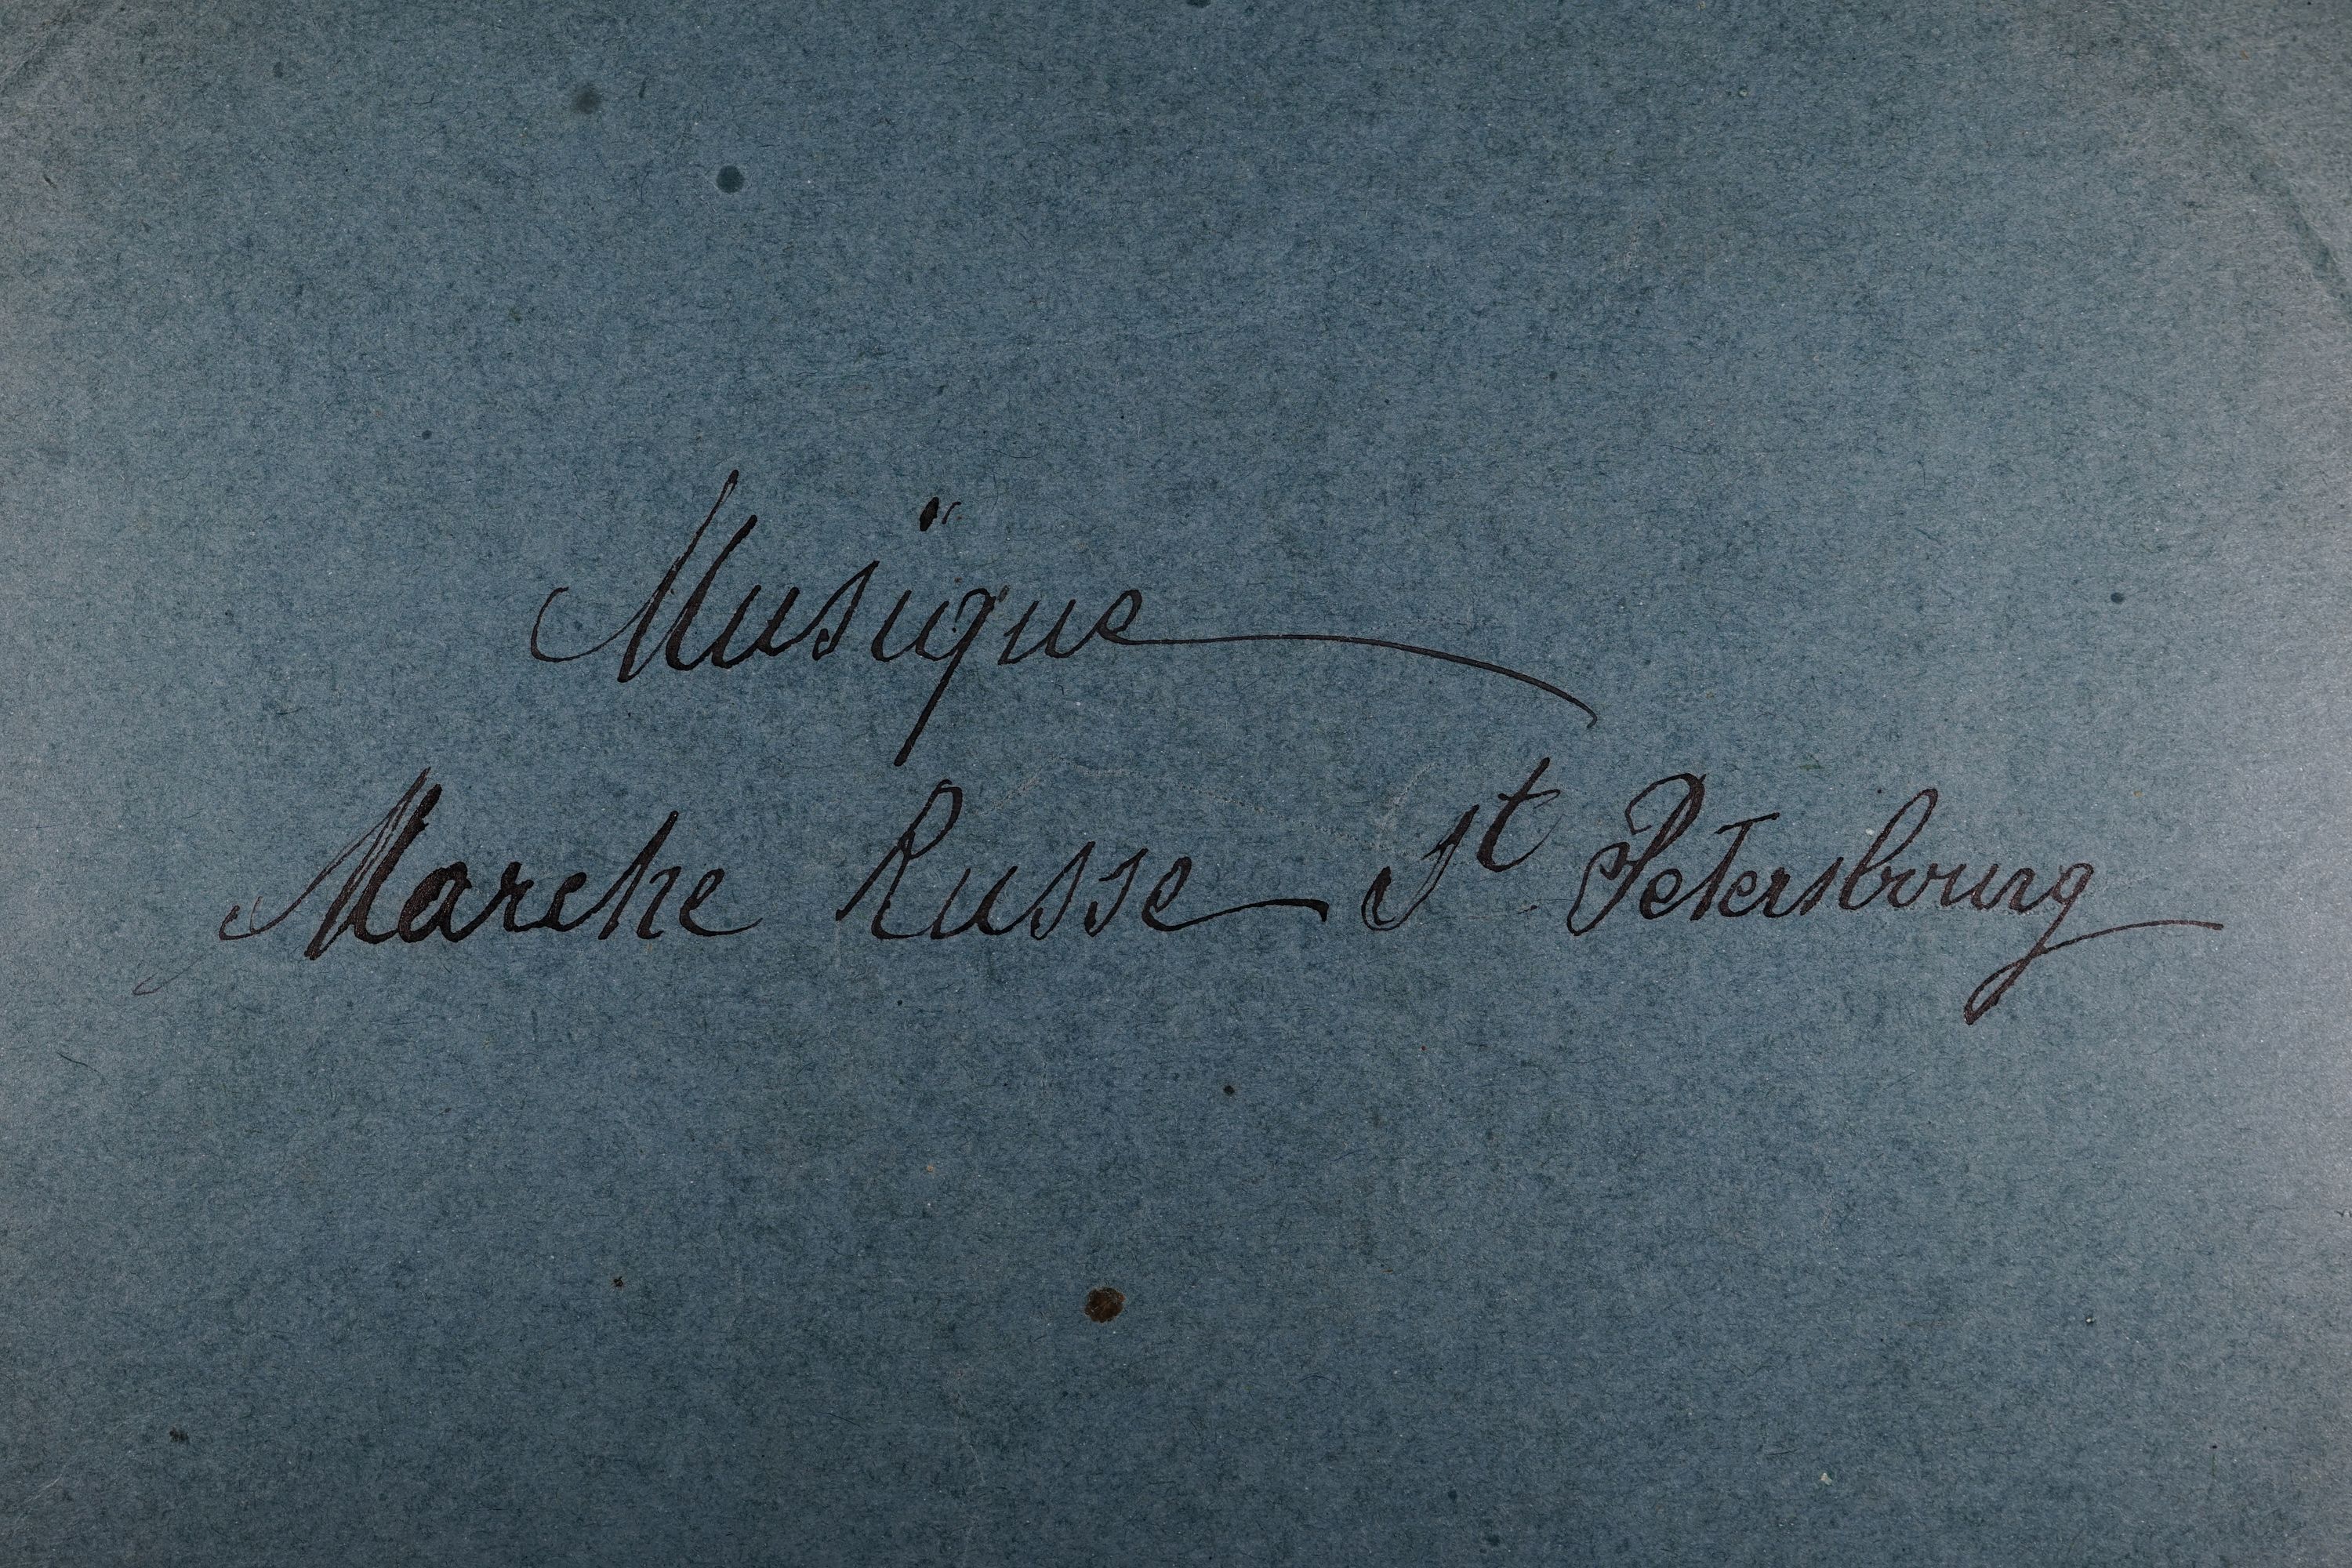 Musïque
Marche Russe St Petersbourg